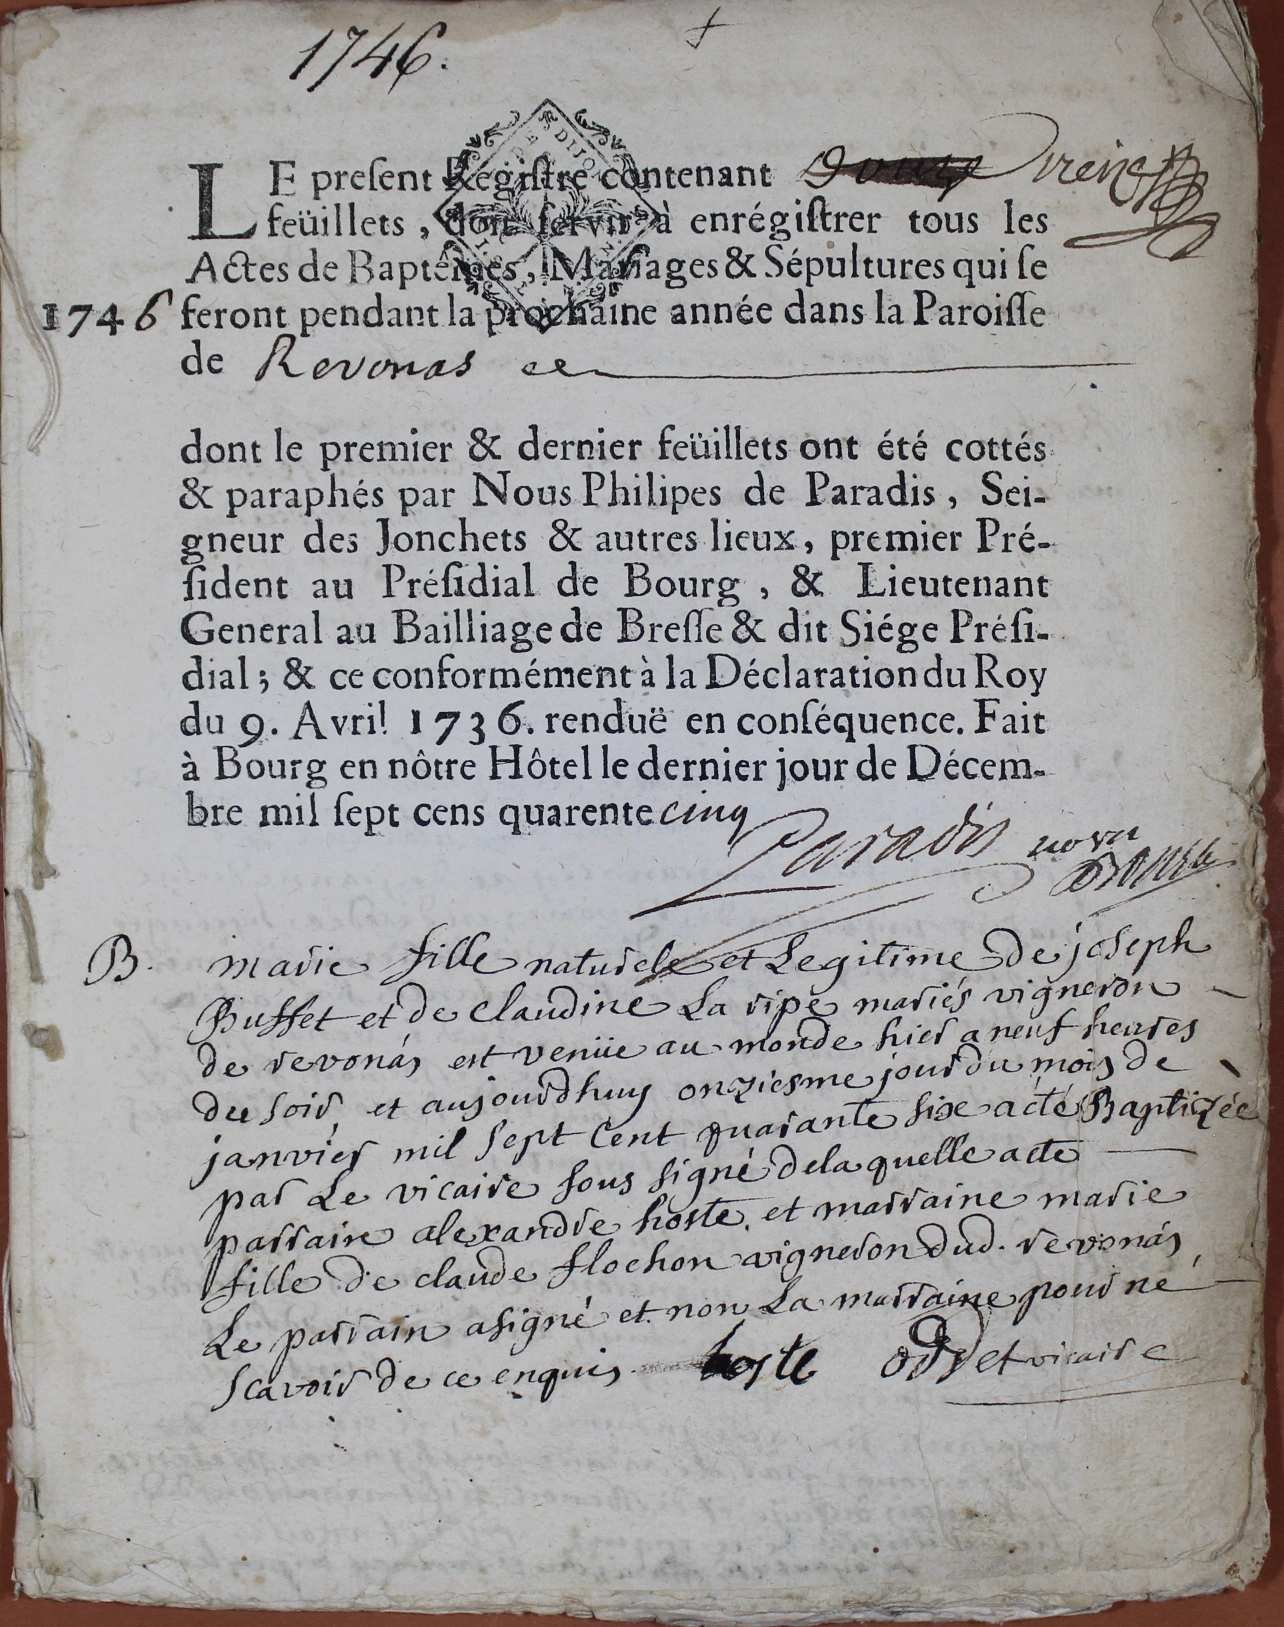 1746.
LE preſent Regiſtre contenant
feüillets, doit ſervir à enrégiſtrer tous les
Actes de Baptêmes, Mariages & Sépultures qui ſe
1746 feront pendant la prochaine année dans la Paroiſſe
de Revonas
dont le premier & dernier feüillets ont été cottés
& paraphés par Nous Philipes de Paradis, Sei-
gneur des Jonchets & autres lieux, premier Pré-
ſident au Préſidial de Bourg, & Lieutenant
General au Bailliage de Breſſe & dit Siége Préſi-
dial; & ce conformément à la Déclaration du Roy
du 9. Avril 1736. renduë en conſéquence. Fait
à Bourg en nôtre Hôtel le dernier jour de Décem-
bre mil ſept cens quarente cinq
Paradis
B. marie fille naturele et Legitime de joseph
Buffet et de claudine La ripe mariés vigneron
de revonas est venüe au monde hier a neuf heures
du soir et aujourdhuy onziesme jour du mois de
janvier mil sept cent quarante six a été Baptizée
par Le vicaire sous signé de la quelle a ete
parrain alexandre hoste. et marraine marie
fille de claude flochon vigneron dud. revonas
Le parrain a signé et non La marraine pour ne
scavoir de ce enquis hoste vicaire